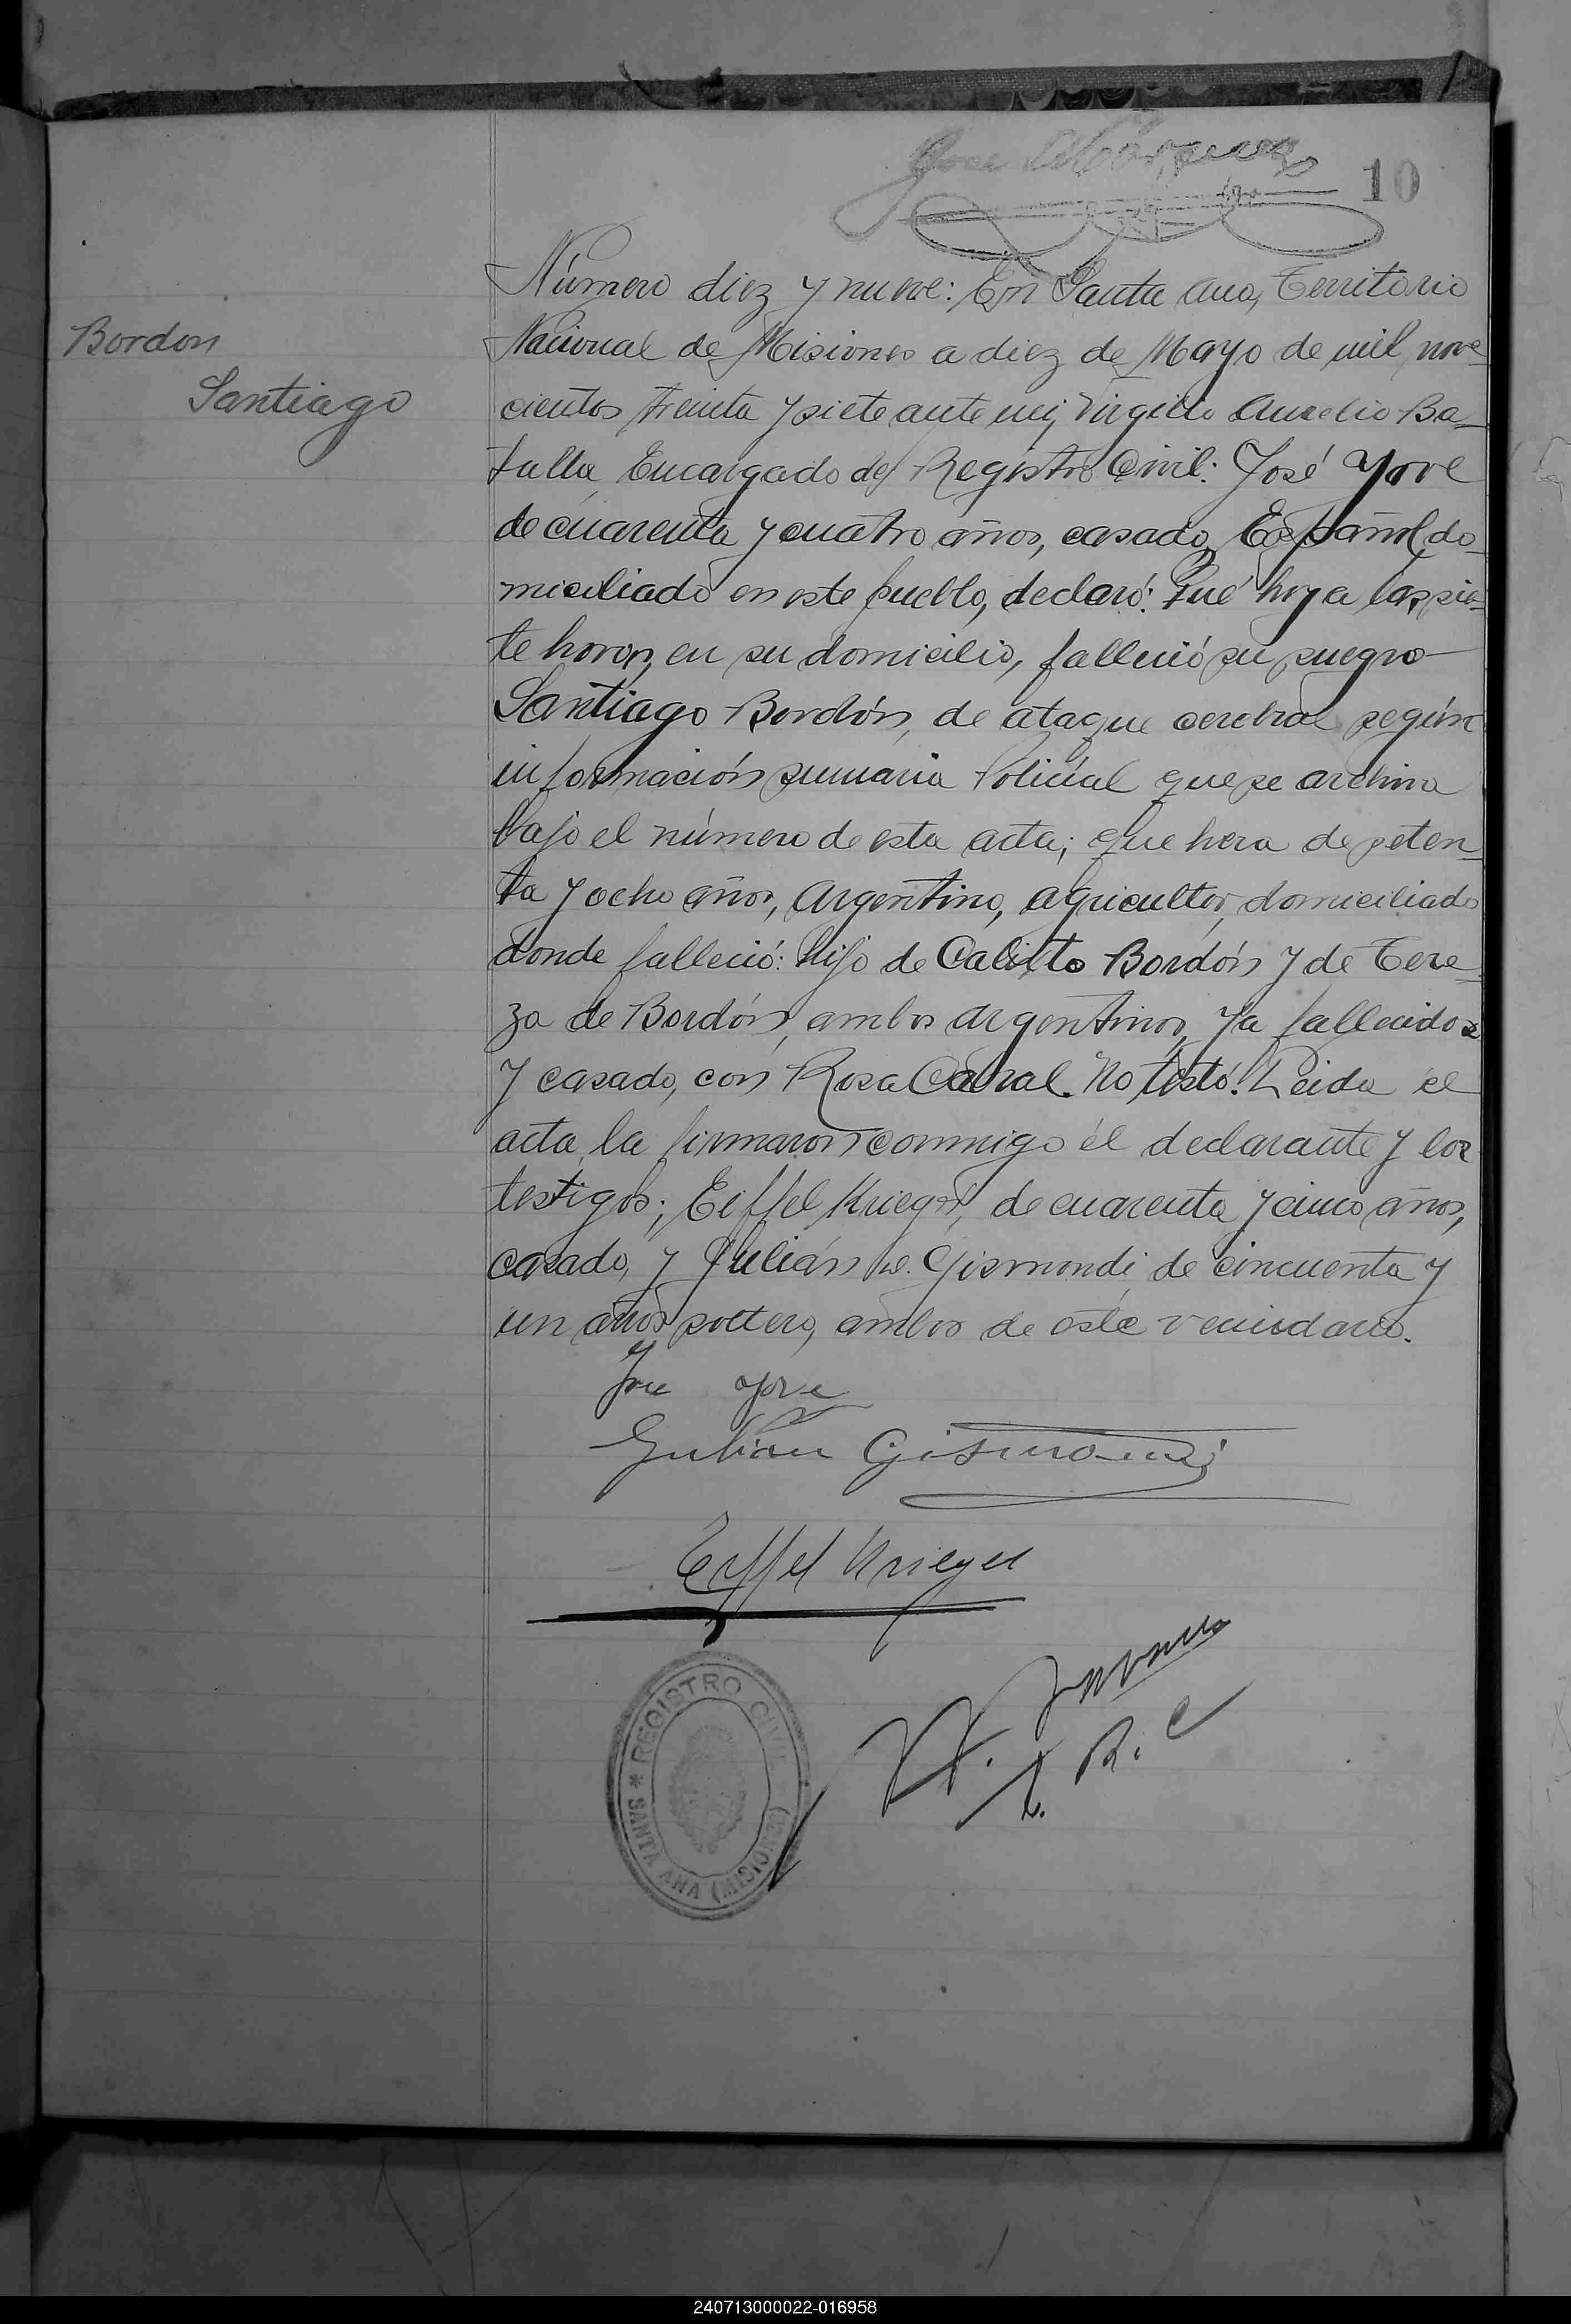 10
Bordon
Santiago
Número diez y nueve: En Santa Ana, Territorio
Nacional de Misiones a diez de Mayo de mil nove-
cientos treinta y siete ante mi, Virgilio Aurelio Ba-
talla Encargado del Registro Civil: José Yore
de cuarenta y cuatro años, casado, Español, do-
miciliado en este pueblo, declaró: Qué hoy a las sie-
te horas, en su domicilio, falleció su suegro
Santiago Bordón, de ataque cerebral según
información sumaria Policial que se archiva
bajo el número de esta acta; que hera de seten-
ta y ocho años, Argentino, agricultor, domiciliado
donde falleció: hijo de Calisto Bordón y de Tere-
za de Bordón, ambos argentinos, ya fallecidos
y casado, con Rosa Cabral. No testó. Leida el
acta la firmaron conmigo él declarante y los
testigos; Eiffel Krieger, de cuarenta y cinco años,
casado, y Julián Gismondi de cincuenta y
un años soltero, ambos de este vecindario.
José Yore
Julián Gismondi
Eiffel Krieger
E. R. C
* REGISTRO CIVIL *
SANTA ANA (MISIONES)
240713000022-016958